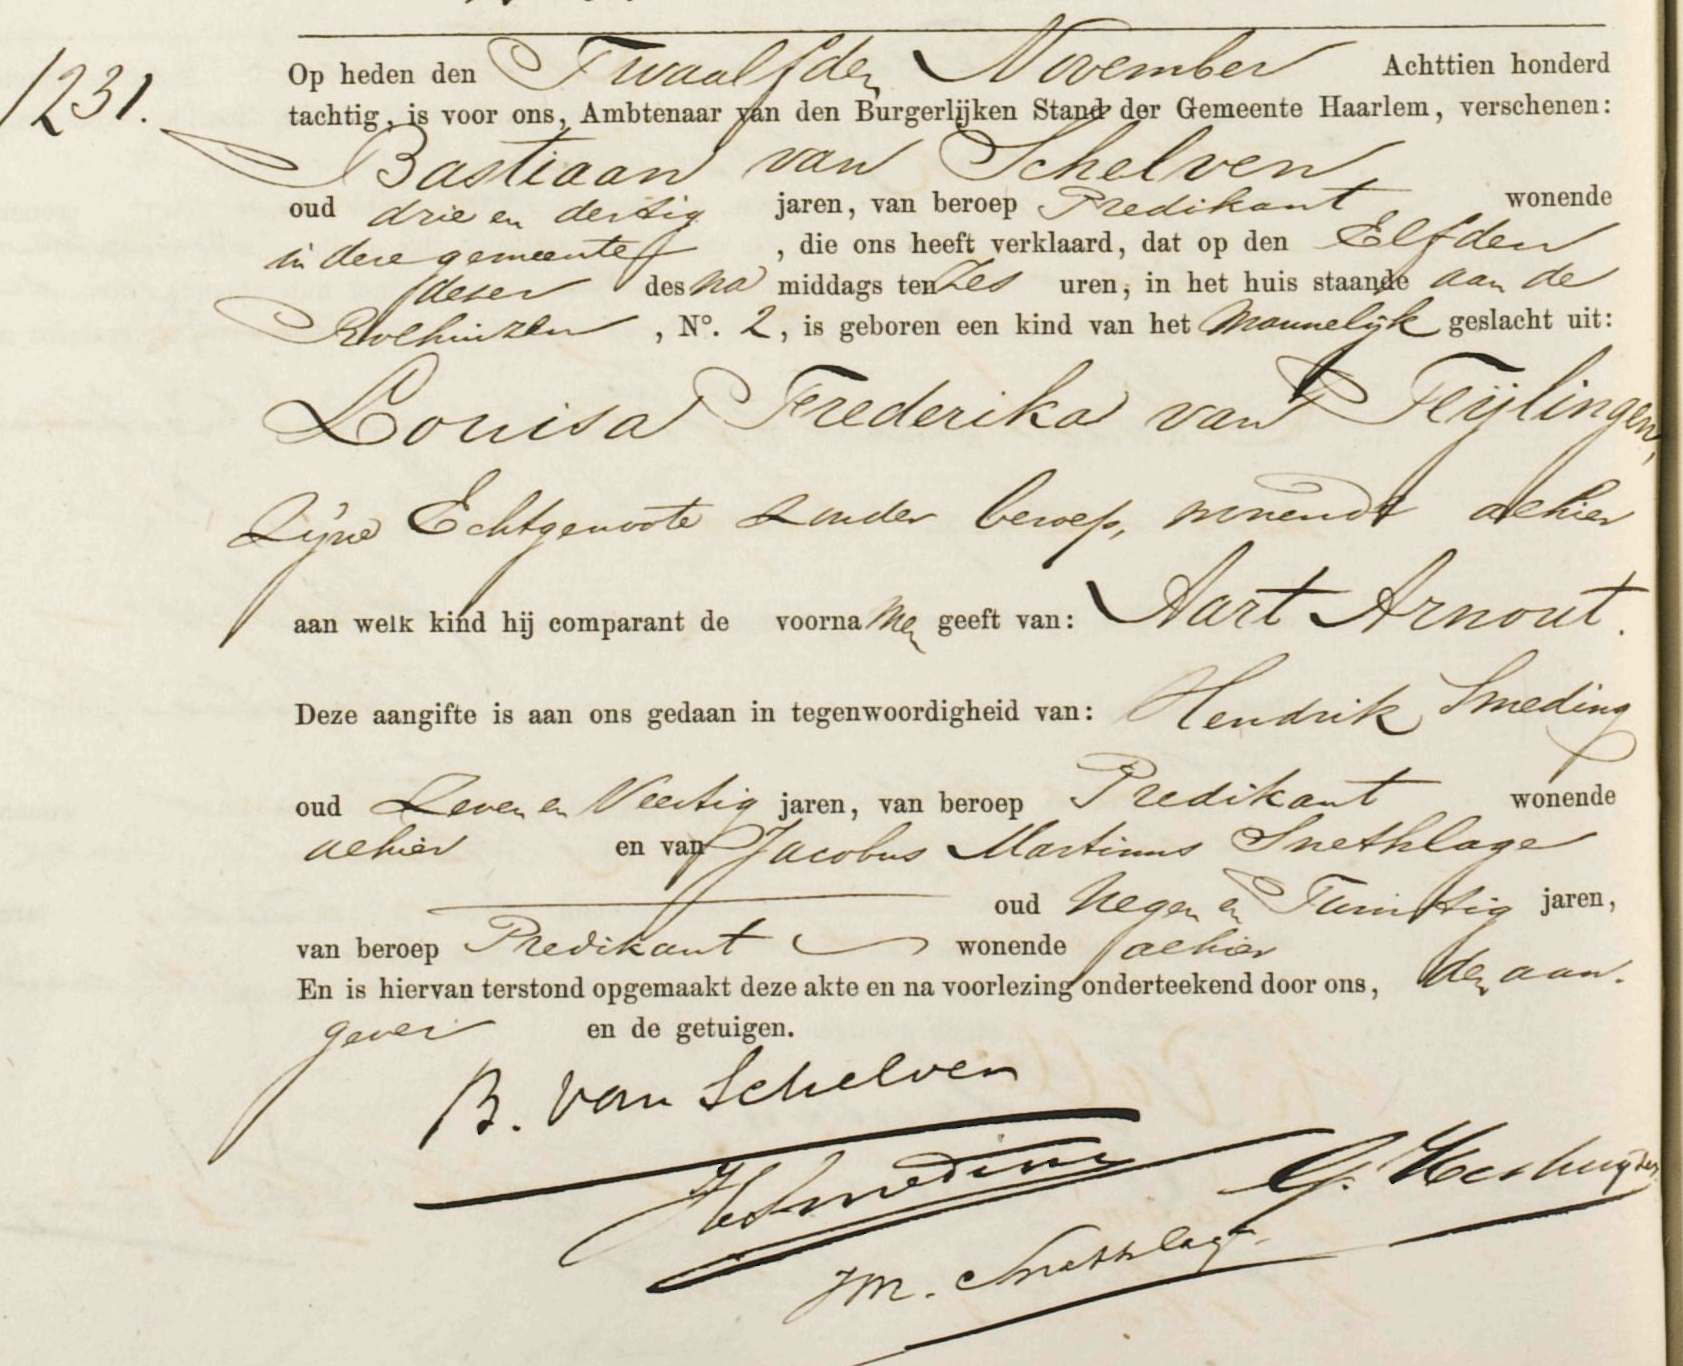 1231.
Op heden den Twaalfden November Achttien honderd
tachtig, is voor ons, Ambtenaar van den Burgerlijken Stand der Gemeente Haarlem, verschenen:
Bastiaan van Schelven,
oud drie en dertig jaren, van beroep Predikant wonende
in deze gemeente, die ons heeft verklaard, dat op den Elfden
dezer des na middags ten Zes uren, in het huis staande aan de
, Nº. 2, is geboren een kind van het Mannelijk geslacht uit:
Louisa Frederika van Teijlingen,
Zijne Echtgenoote zonder beroep, wonende alhier
aan welk kind hij comparant de voornamen geeft van: Aart Arnout.
Deze aangifte is aan ons gedaan in tegenwoordigheid van: Hendrik Smeding
oud Zeven en Veertig jaren, van beroep Predikant wonende
alhier en van Jacobus Martinus Snethlage
oud Negen en Twintig jaren,
van beroep Predikant wonende alhier
En is hiervan terstond opgemaakt deze akte en na voorlezing onderteekend door ons, den aan-
gever en de getuigen.
B. van Schelven
HSmeding
JM. Snethlage